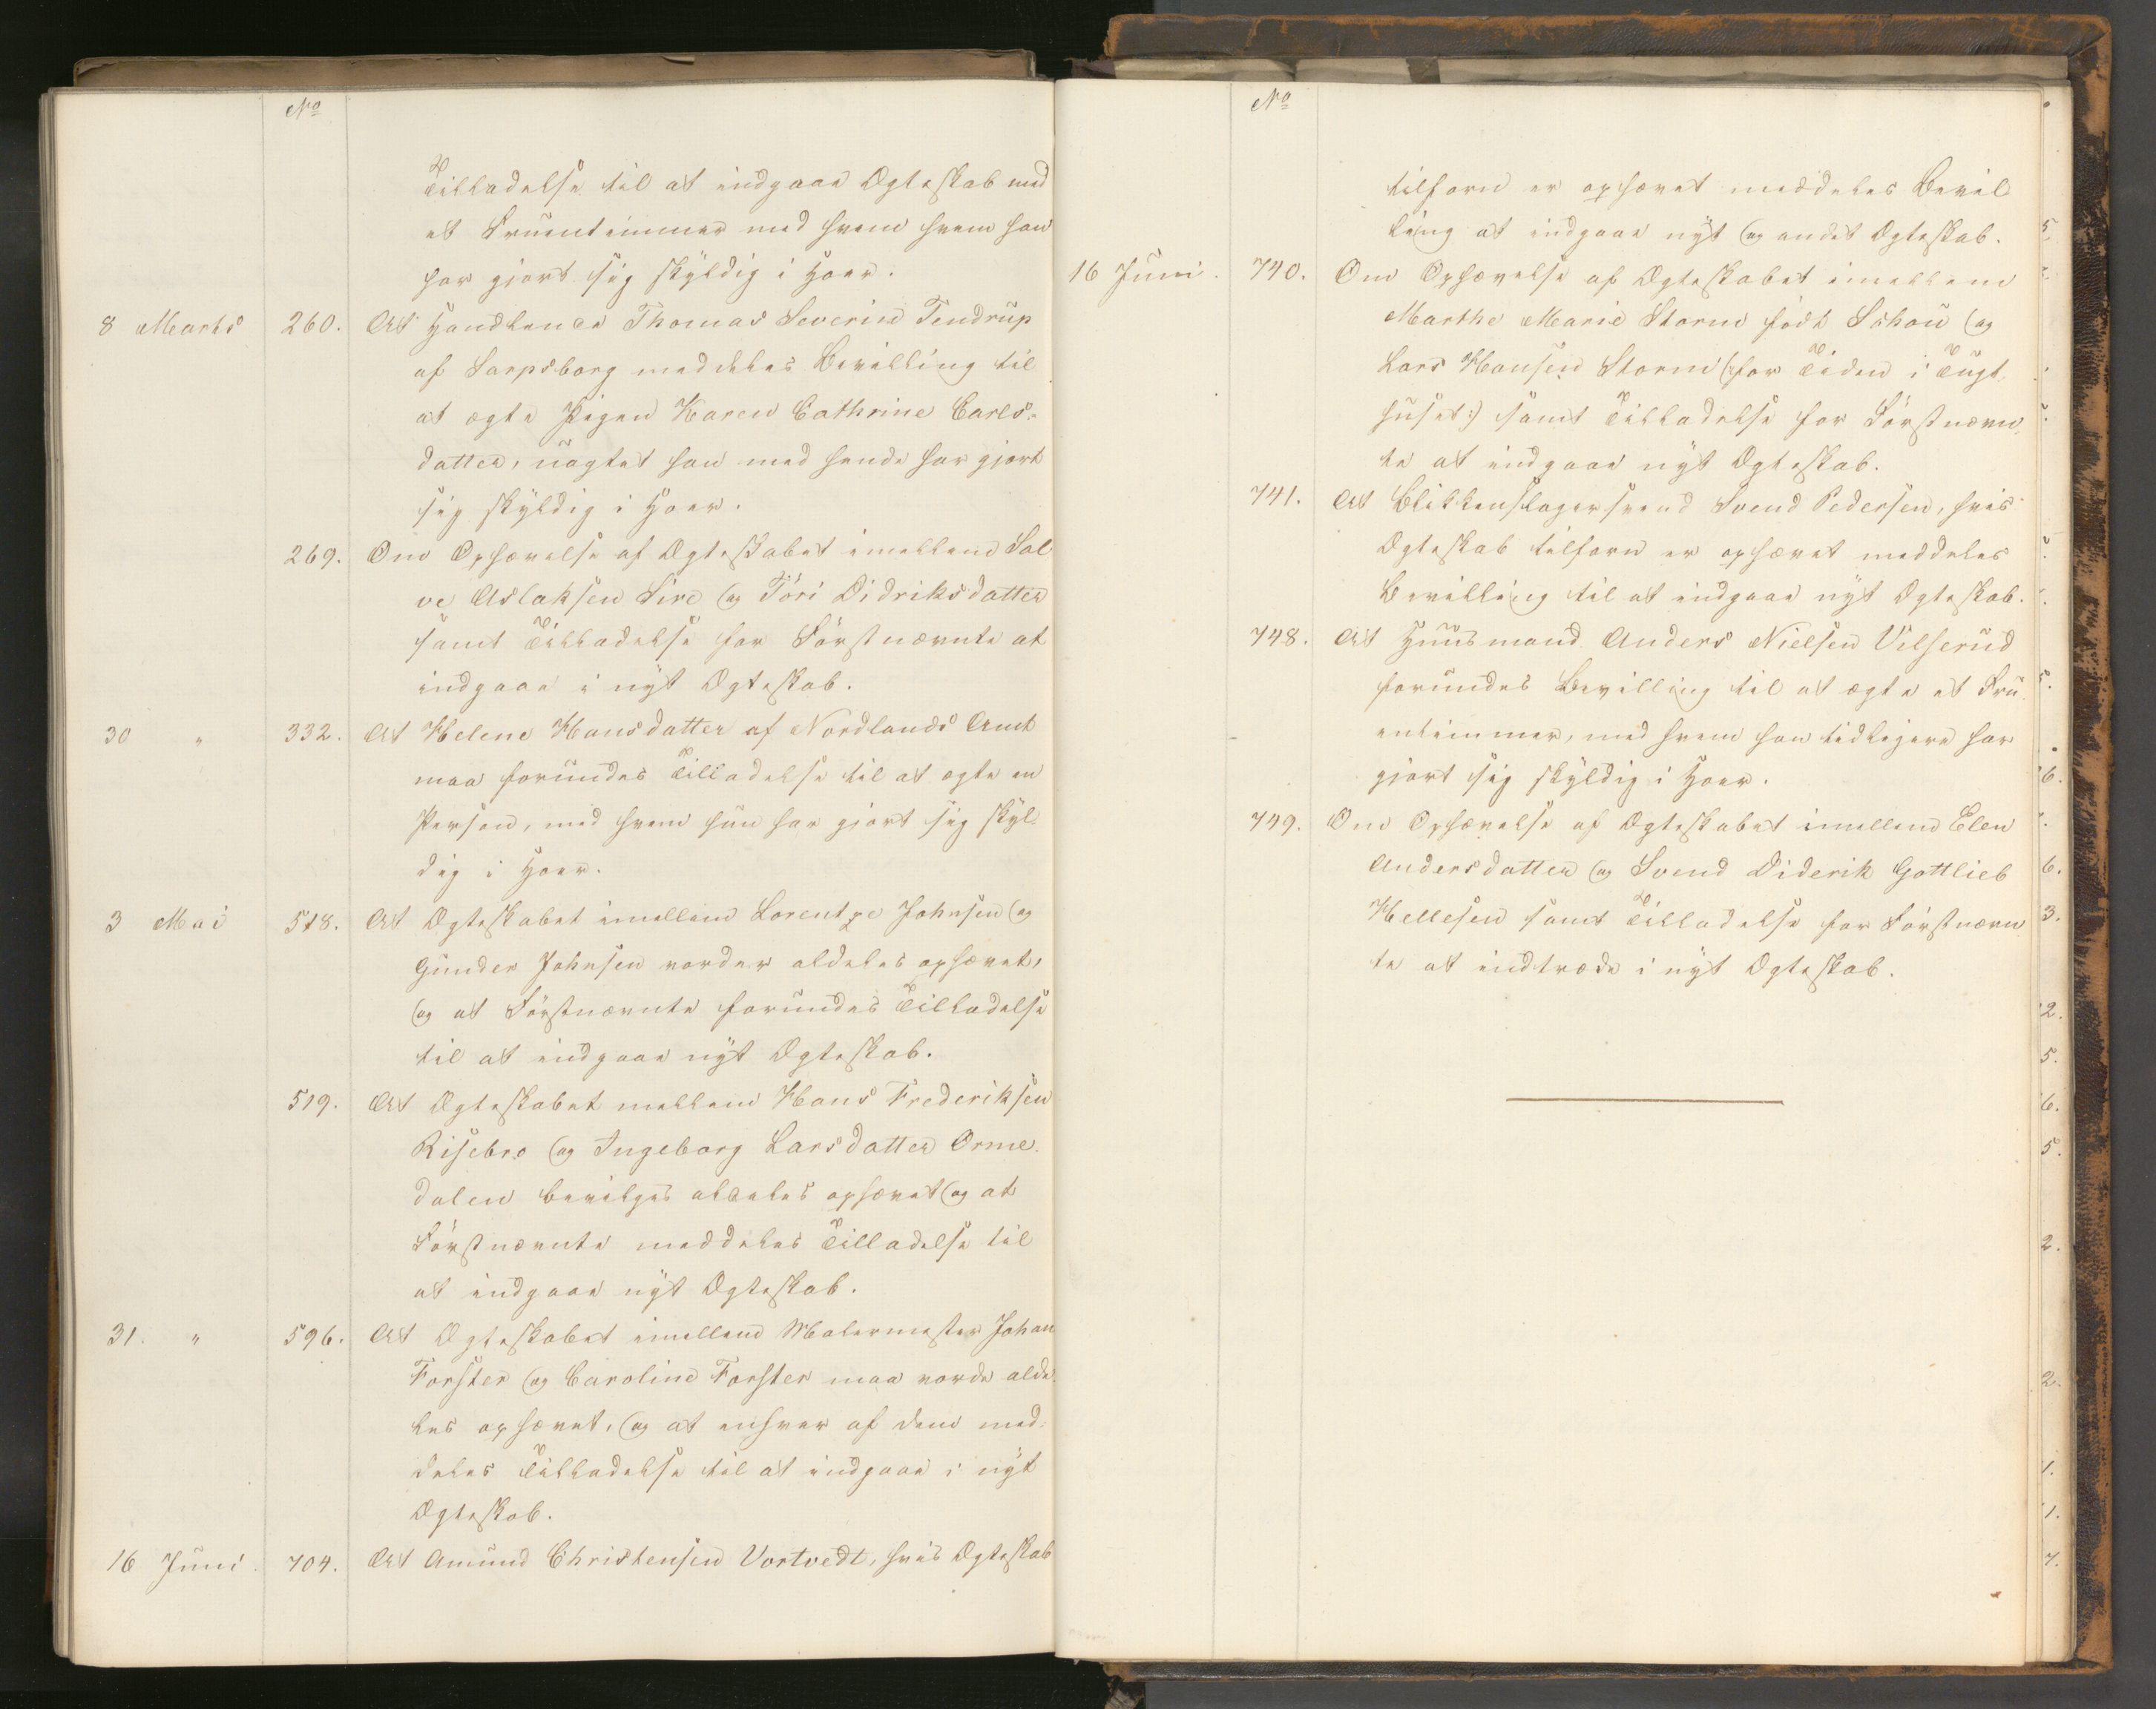 No
Tilladelse til at indgaae Ægteskab med
et Fruentimmer med hvem hvem han
har gjort sig skyldig i Hoer.
8 Marts 260. At Handlende Thomas Severin Tendrup
af Sarpsborg meddeles Bevilling til
at ægte Pigen Karen Cathrine Carls-
datter, uagtet han med hende har gjort
sig skyldig i Hoer.
269. Om Ophævelse af Ægteskabet imellem Sal
ve Aslaksen Sire og Töri Didriksdatter
samt Tilladelse for Förstnævnte at
indgaae i nyt Ægteskab.
30 " 332. At Helene Hansdatter af Nordlands Amt
maa forundes Tilladelse til at ægte en
Person, med hvem hun har gjort sig skyl
dig i Hoer.
3 Mai 518. At Ægteskabet imellem Lorentze Johnsen og
Gunder Johnsen vorder aldeles ophævet,
og at Förstnævnte forundes Tilladelse
til at indgaae nyt Ægteskab.
519. At Ægteskabet mellem Hans Frederiksen
Risebro og Ingeborg Larsdatter Orme-
dalen bevilges aldeles ophævet og at
Förstnævnte meddeles Tilladelse til
at indgaae nyt Ægteskab.
31. " 596. At Ægteskabet imellem Malermester Johan
Forster og Caroline Forster maa vorde alde-
les ophævet, og at enhver af dem med-
deles Tilladelse til at indgaae i nyt
Ægteskab.
16 Juni. 704. At Amund Christensen Vortvedt, hvis Ægteskab
No
tilforn er ophævet meddeles Bevil
ling at indgaae nyt og andet Ægteskab.
16 Juni. 740. Om Ophævelse af Ægteskabet imellem
Marthe Marie Storm födt Schou og
Lars Hansen Storm (:for Tiden i Tugt-
huset:) samt Tilladelse for Förstnævn-
te at indgaae nyt Ægteskab.
741. At Blikkenslagersvend Svend Pedersen, hvis
Ægteskab tilforn er ophævet meddeles
Bevilling til at indgaae nyt Ægteskab.
748. At Huusmand Anders Nielsen Vilserud
forundes Bevilling til at ægte et Fru-
entimmer, med hvem han tidligere har
gjort sig skyldig i Hoer.
749. Om Ophævelse af Ægteskabet imellem Elen
Andersdatter og Svend Diderik Gottlieb
Hellesen samt Tilladelse for Förstnævn
te at indtræde i nyt Ægteskab.